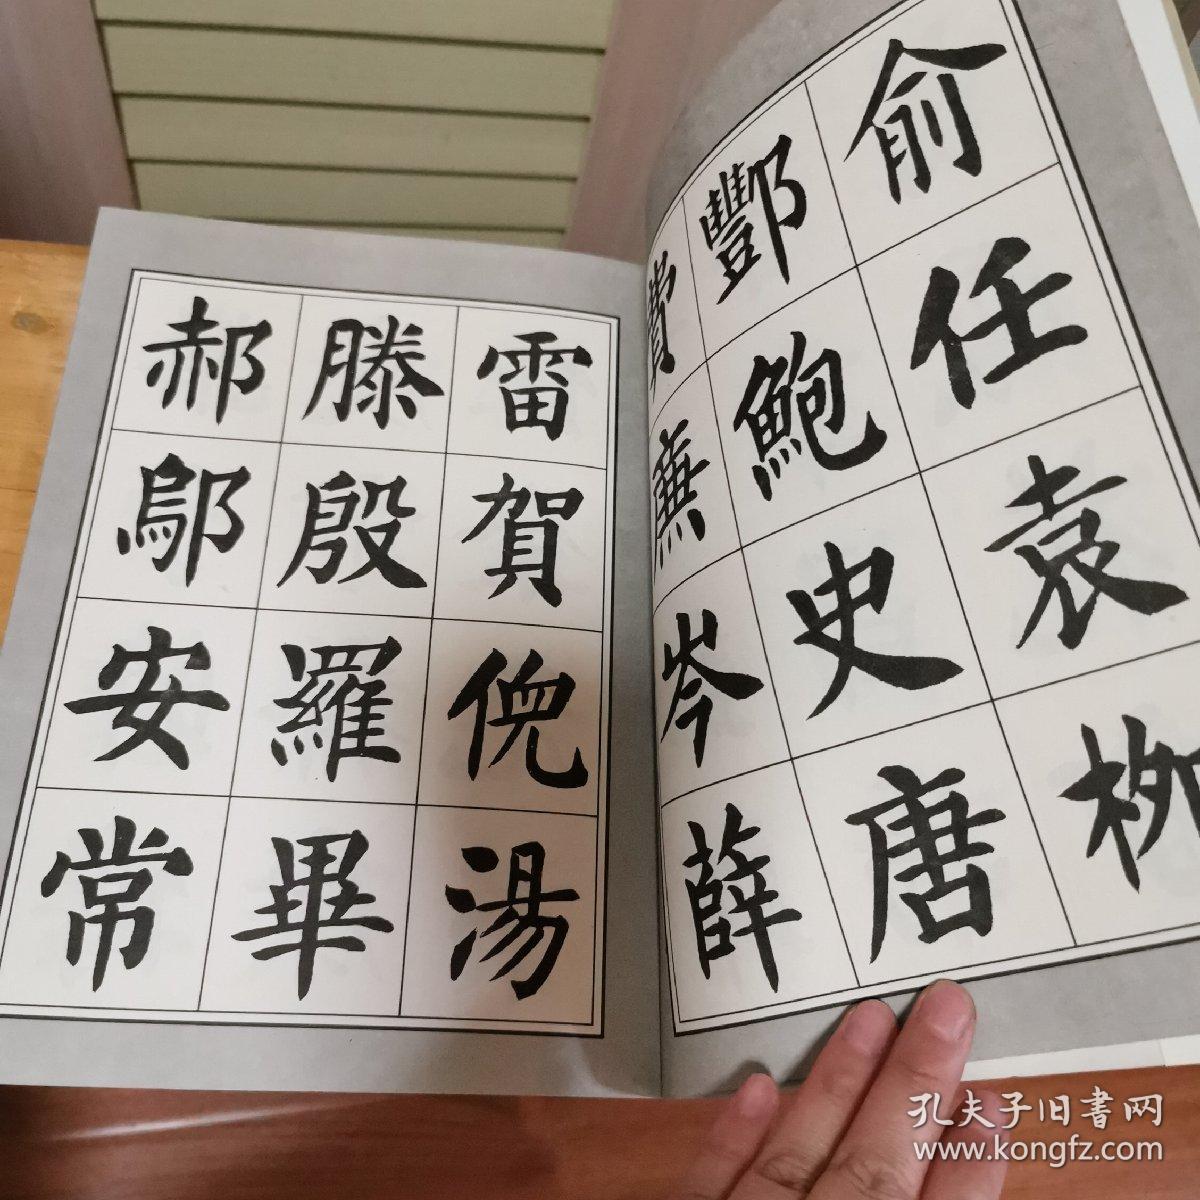 俞任袁柳
酆鮑史唐
費廉岑薛
雷賀倪湯
滕殷羅畢
郝鄔安常
孔夫子旧書网
www.kongfz.com